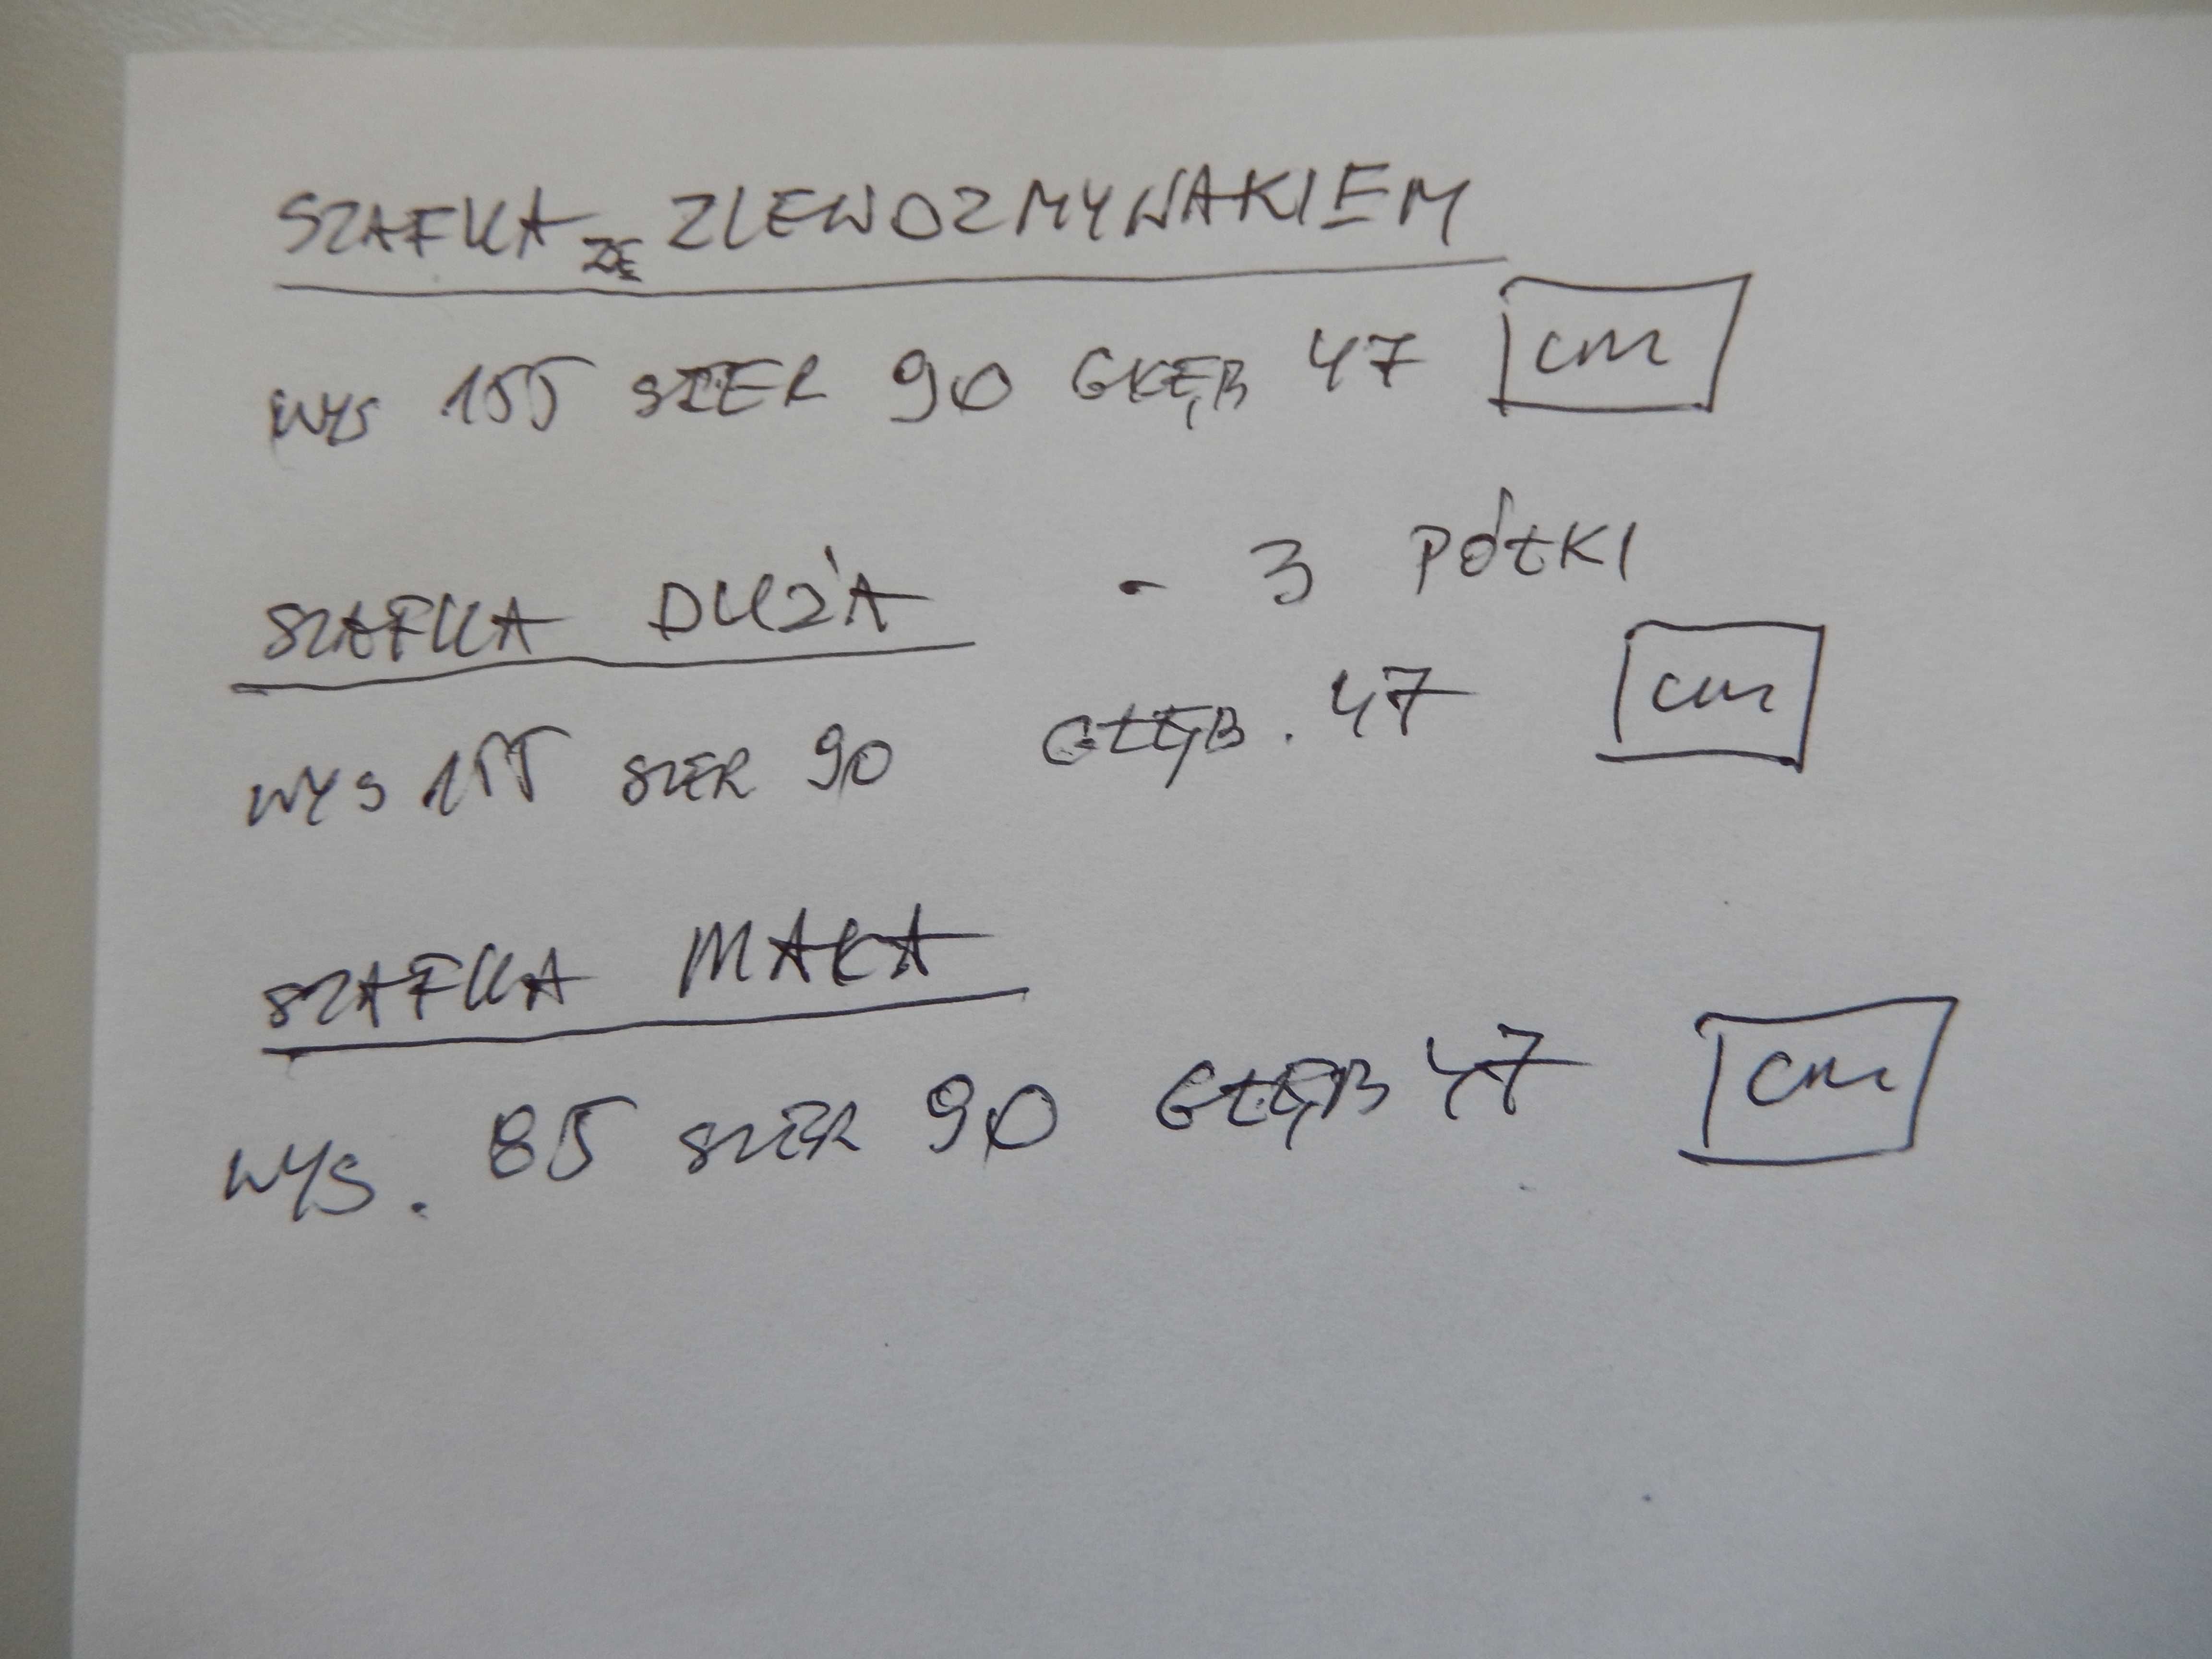 SZAFKA ZE ZLEWOZMYWAKIEM
WYS 155 SZER 90 GŁĘB 47 cm
SZAFKA DUŻA - 3 PÓŁKI
WYS 155 SZER 90 GŁĘB. 47 cm
SZAFKA MAŁA
WYS. 85 SZER 90 GŁĘB 47 cm